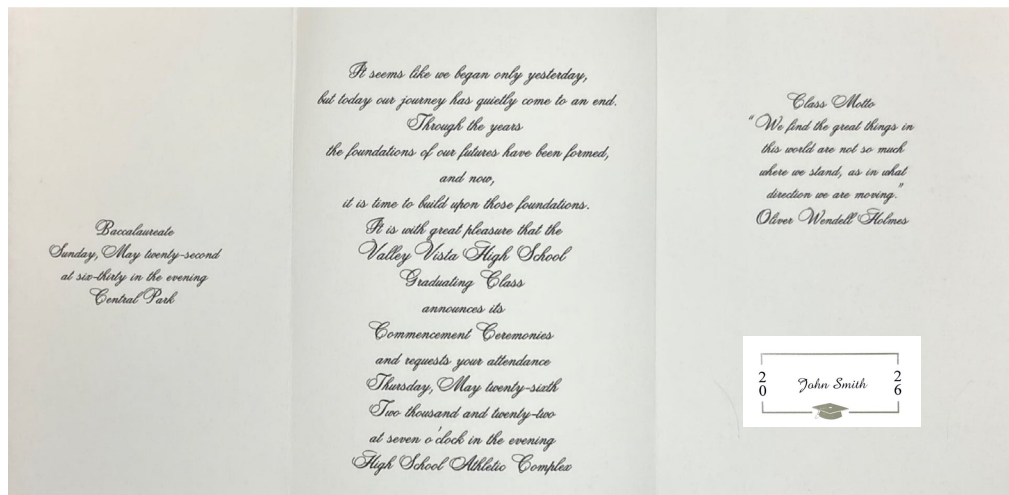 Baccalaureate
Sunday, May twenty-second
at six-thirty in the evening
Central Park
It seems like we began only yesterday,
but today our journey has quietly come to an end.
Through the years
the foundations of our futures have been formed,
and now,
it is time to build upon those foundations.
It is with great pleasure that the
Valley Vista High School
Graduating Class
announces its
Commencement Ceremonies
and requests your attendance
Thursday, May twenty-sixth
Two thousand and twenty-two
at seven o'clock in the evening
High School Athletic Complex
Class Motto
"We find the great things in
this world are not so much
where we stand, as in what
direction we are moving."
Oliver Wendell Holmes
20 John Smith 26